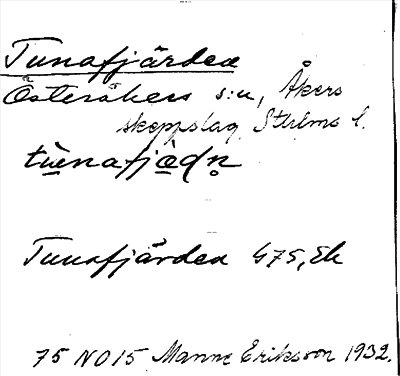 Tunafjärden
Österåkers s:n, Åkers
skeppslag, Sthlms l.
tù̱nafjæ̱̀dṇ
Tunafjärden G75, Ek
75 NO 15 Manne Eriksson 1932.